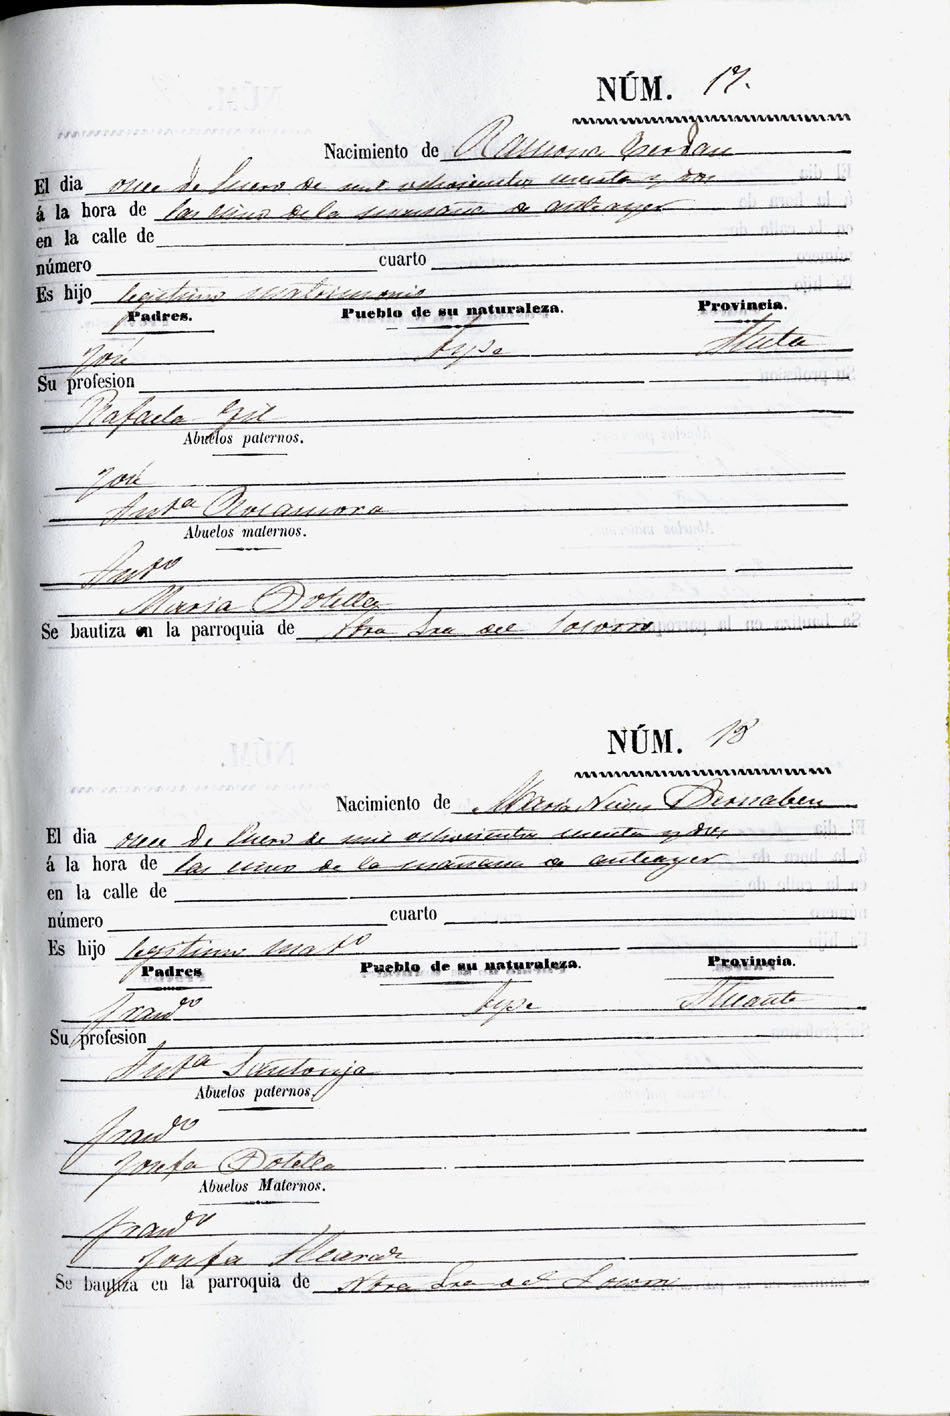 NÚM. 17.
Nacimiento de Ramona Cerdan
El dia once de Enero de mil ochocientos y dos
á la hora de las cinco de la mañana de anteayer
en la calle de
número cuarto
Es hijo legitimo matrimonio
Padres. Pueblo de su naturaleza. Provincia.
José Aspe
Su profesion
Rafaela Gil
Abuelos paternos.
José
Antª Rocamora
Abuelos maternos.
Antº
Maria Botella
Se bautiza en la parroquia de Ntra Sra del Socorro
NÚM. 18
Nacimiento de Maria Nieves Bernabeu
El dia once de Enero de mil ochocientos y dos
á la hora de las cinco de la mañana de anteayer
en la calle de
número cuarto
Es hijo legitimo matº
Padres Pueblo de su naturaleza. Provincia.
Francº Aspe Alicante
Su profesion
Antª Santonja
Abuelos paternos.
Francº
Josefa Botella
Abuelos Maternos.
Francº
Josefa
Se bautiza en la parroquia de Ntra Sra del Socorro